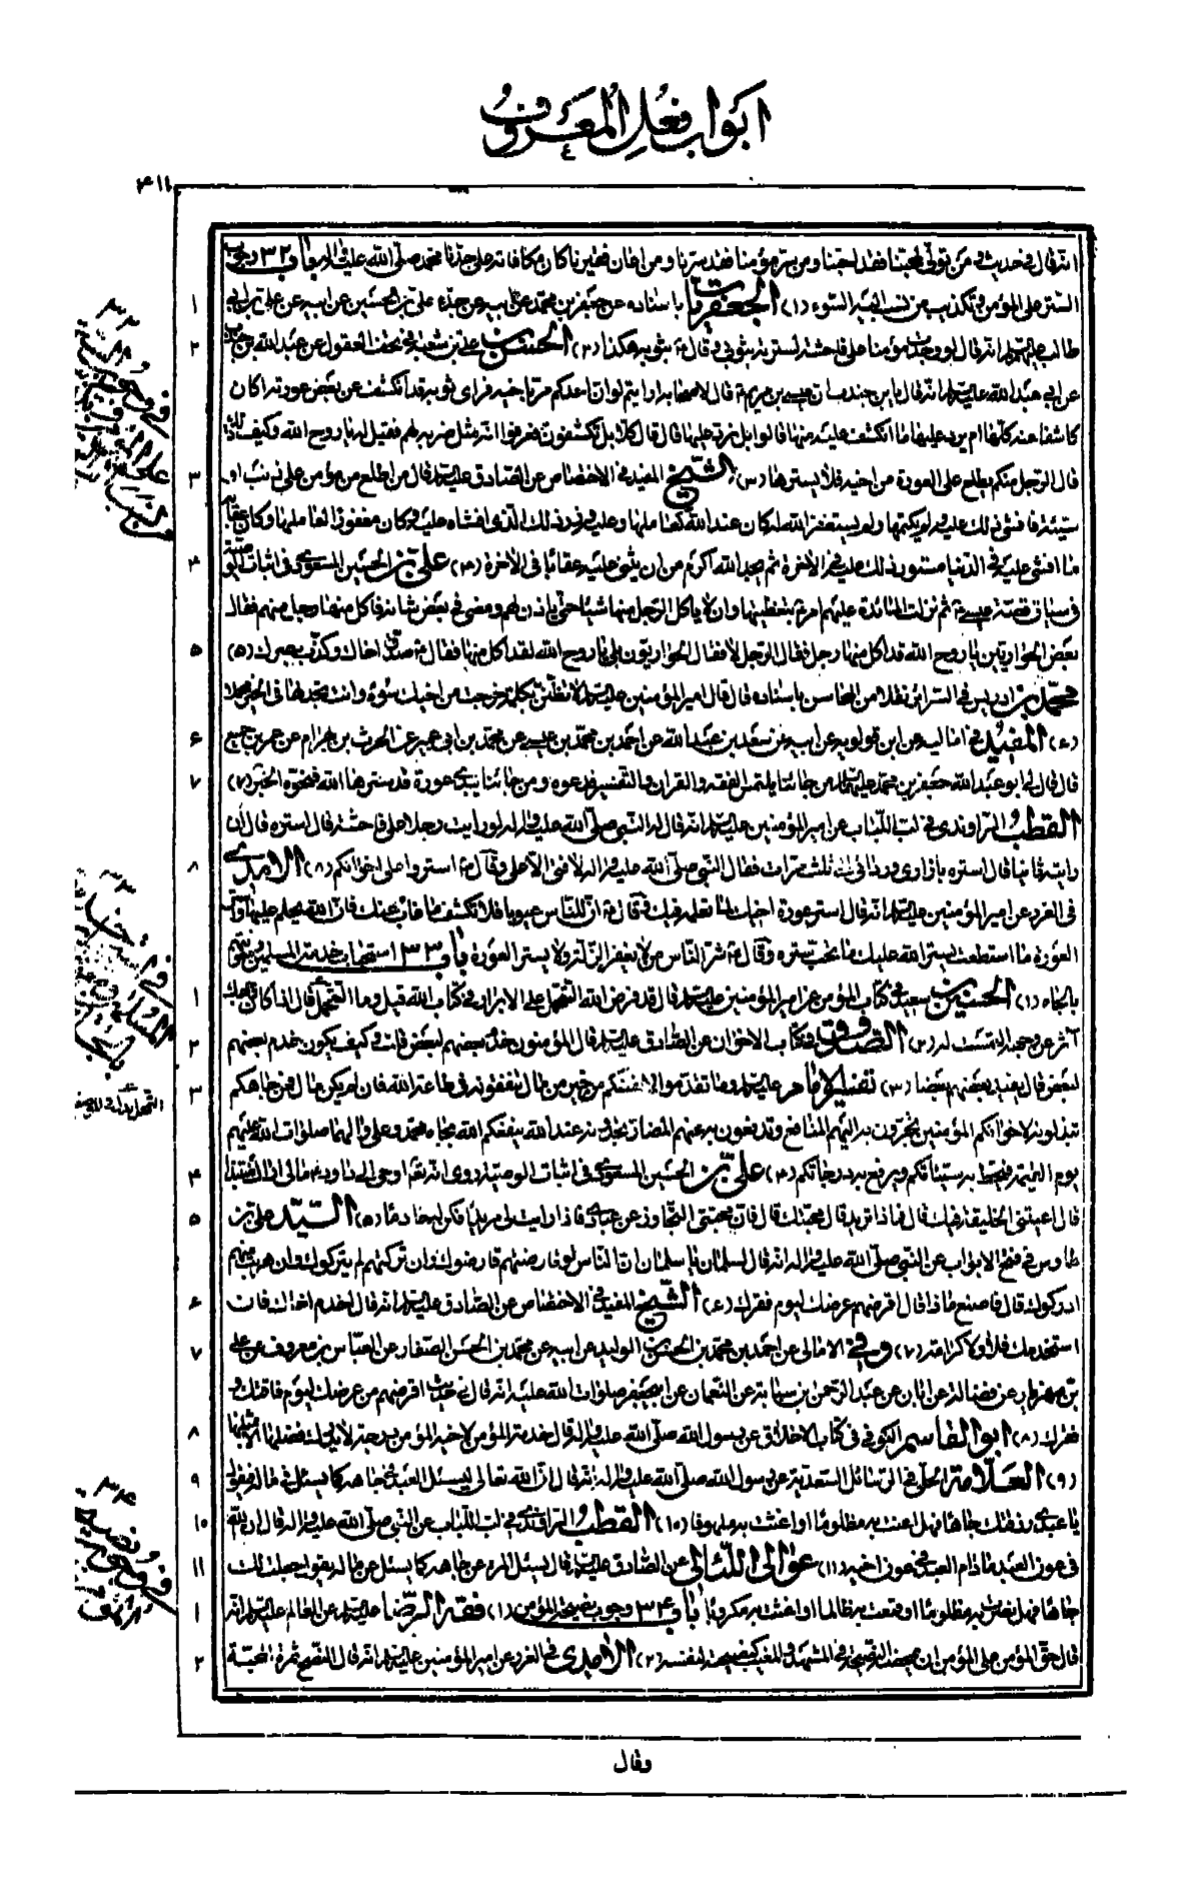 ابواب فعل المعروف
٤١١
انه قال في حديث من تولى لمحبتنا فقد احبنا ومن سر مؤمنا فقد سرنا ومن اعان فقيرنا كان مكافاته على جدنا محمد صلى الله عليه واله باب ٣٢
الستر على المؤمن وتكذيب من نسب اليه السوء (١) الجعفريات باسناده عن جعفر بن محمد عن ابيه عن جده علي بن الحسين عن ابيه عن علي بن ابي ١
طالب عليهم انه قال لو وجدت مؤمنا على فاحشة لسترته بثوبي وقال بثوبه هكذا (٢) الحسن بن علي بن شعبة في تحف العقول عن عبد الله بن ٢
عن ابي عبد الله عليه انه قال يا بن جندب ان عيسى بن مريم قال لاصحابه ارايتم لو ان احدكم مر باخيه فراى ثوبه قد انكشف عن بعض عورته اكان
كاشفا عنه كلها ام يرد عليها ما انكشف عليه منها قالوا بل نرد عليها قال قال كلا بل تكشفون فعرفوا انه مثل ضربه لهم فقيل له يا روح الله وكيف ذلك
قال الرجل منكم يطلع على العورة من اخيه فلا يسترها (٣) الشيخ المفيد في الاختصاص عن الصادق عليه قال من اطلع من مؤمن على ذنب او ٣
سيئة فافشى ذلك عليه ولم يكتمها ولم يستغفر الله له كان عند الله كعاملها وعليه وزر ذلك الذي افشاه عليه وكان مغفورا لعاملها وكان عقابه
ما افشى عليه في الدنيا مستور ذلك عليه في الاخرة ثم يجد الله اكرم من ان يثني عليه عقابا في الاخرة (٤) علي بن الحسين المسعودي في اثبات الوصية ٤
في سياق قصة عيسى ثم نزلت المائدة عليهم امر بتغطيتها وان لا ياكل الرجل منها شيئا حتى ياذن لهم ومضى في بعض شانه فاكل منها رجل منهم فقال
بعض الحواريين يا روح الله قد اكل منها رجل فقال الرجل لا فقال الحواريون بلى يا روح الله لقد اكل منها فقال صدق اخاك وكذب بصرك (٥) ٥
محمد بن ادريس في السرائر نقلا من المحاسن باسناده قال قال امير المؤمنين عليه لا تظنن بكلمة خرجت من اخيك سوء وانت تجد لها في الخير محملا
(٦) المفيد في اماليه عن ابن قولويه عن ابيه عن سعد بن عبد الله عن احمد بن محمد بن عيسى عن محمد بن ابي عمير عن الحرث بن بهرام عن عمرو بن جميع ٦
قال قال لي ابو عبد الله جعفر بن محمد عليهما من جائنا يلتمس الفقه والقران والتفسير فدعوه ومن جائنا يبدي عورة قد سترها الله فنحوه الخبر (٧) ٧
القطب الراوندي في لب اللباب عن امير المؤمنين عليه انه قال له النبي صلى الله عليه واله لو رايت رجلا على فاحشة قال استره قال ان
رايته ثانيا قال استره بازاري وردائي الى ثلث مرات فقال النبي صلى الله عليه واله لا فتى الا علي وقال استروا على اخوانكم (٨) الامدي ٨
في الغرر عن امير المؤمنين عليه انه قال استر عورة اخيك لما تعلمه فيك وقال ان للناس عيوبا فلا تكشف ما غاب عنك فان الله يحلم عليها
العورة ما استطعت يستر الله عليك ما تحب ستره وقال شر الناس من لا يغفر الزلة ولا يستر العورة باب ٣٣ استحباب خدمة المسلمين
بالجاه (١) الحسين بن سعيد في كتاب المؤمن عن امير المؤمنين عليه قال قد فرض الله التحمل على الابرار في كتاب الله قيل وما التحمل قال اذا كان وجهك ١
آثر عن وجهه التمست له (٢) الصدوق في كتاب الاخوان عن الصادق عليه قال المؤمنون خدم بعضهم لبعض قلت وكيف يكون خدم بعضهم ٢
لبعض قال يفيد بعضهم بعضا (٣) تفسير الامام عليه وما تقدموا لانفسكم من خير من مال تنفقونه في طاعة الله فان لم يكن مال فمن جاهكم ٣
تبذلونه لاخوانكم المؤمنين تجرون به اليهم المنافع وتدفعون به عنهم المضار تجدوه عند الله ينفعكم الله بجاه محمد وعلي والهما صلوات الله عليهم
يوم القيمة فيحط به سيئاتكم ويرفع به درجاتكم (٤) علي بن الحسين المسعودي في اثبات الوصية روى انه اوحى الى داود مالي اراك منتبذا ٤
قال اعيتني الخليقة فيك قال فماذا تريد قال محبتك قال فان محبتي التجاوز عن عبادي فاذا رايت لي مريدا فكن له خادما (٥) السيد علي بن ٥
طاوس في فتح الابواب عن النبي صلى الله عليه واله انه قال لسلمان يا سلمان ان الناس لو قارضتهم قارضوك وان تركتهم لم يتركوك وان هربت منهم
ادركوك قال فاصنع ماذا قال اقرضهم عرضك ليوم فقرك (٦) الشيخ المفيد في الاختصاص عن الصادق عليه انه قال اخدم اخاك فان ٦
استخدمك فلا ولا كرامة (٧) وفي الامالي عن احمد بن محمد بن الحسن بن الوليد عن ابيه عن محمد بن الحسن الصفار عن العباس بن معروف عن علي ٧
بن مهزيار عن فضالة عن ابان عن عبد الرحمن بن سيابة عن النعمان عن ابي جعفر صلوات الله عليه انه قال في حديث اقرضهم من عرضك ليوم فاقتك و
فقرك (٨) ابو القاسم الكوفي في كتاب الاخلاق عن رسول الله صلى الله عليه واله قال خدمة المؤمن لاخيه المؤمن درجة لا يدرك فضلها الا بمثلها ٨
(٩) العلامة الحلي في الرسالة السعدية عن رسول الله صلى الله عليه واله انه قال ان الله تعالى ليسئل العبد في جاهه كما يسئل في ماله فيقول ٩
يا عبدي رزقتك جاها فهل اعنت به مظلوما او اغثت به ملهوفا (١٠) القطب الراوندي في لب اللباب عن النبي صلى الله عليه واله قال ان الله ١٠
في عون العبد ما دام العبد في عون اخيه (١١) عوالي اللئالي عن الصادق عليه قال يسئل المرء عن جاهه كما يسئل عن ماله يقول جعلت لك ١١
جاها فهل نصرت به مظلوما او قمعت به ظالما او اغثت به مكروبا باب ٣٤ وجوب نصيحة المؤمن (١) فقه الرضا عليه عن العالم عليه انه ١
قال حق المؤمن على المؤمن ان يمحضه النصيحة في المشهد والمغيب كنصيحته لنفسه (٢) الامدي في الغرر عن امير المؤمنين عليه انه قال النصح ثمرة المحبة ٢
وقال